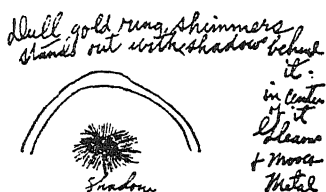 Dull gold ring, shimmers
stands out with shadow behind
it.
in center
of it
Gleams
& moves
Metal
Shadow